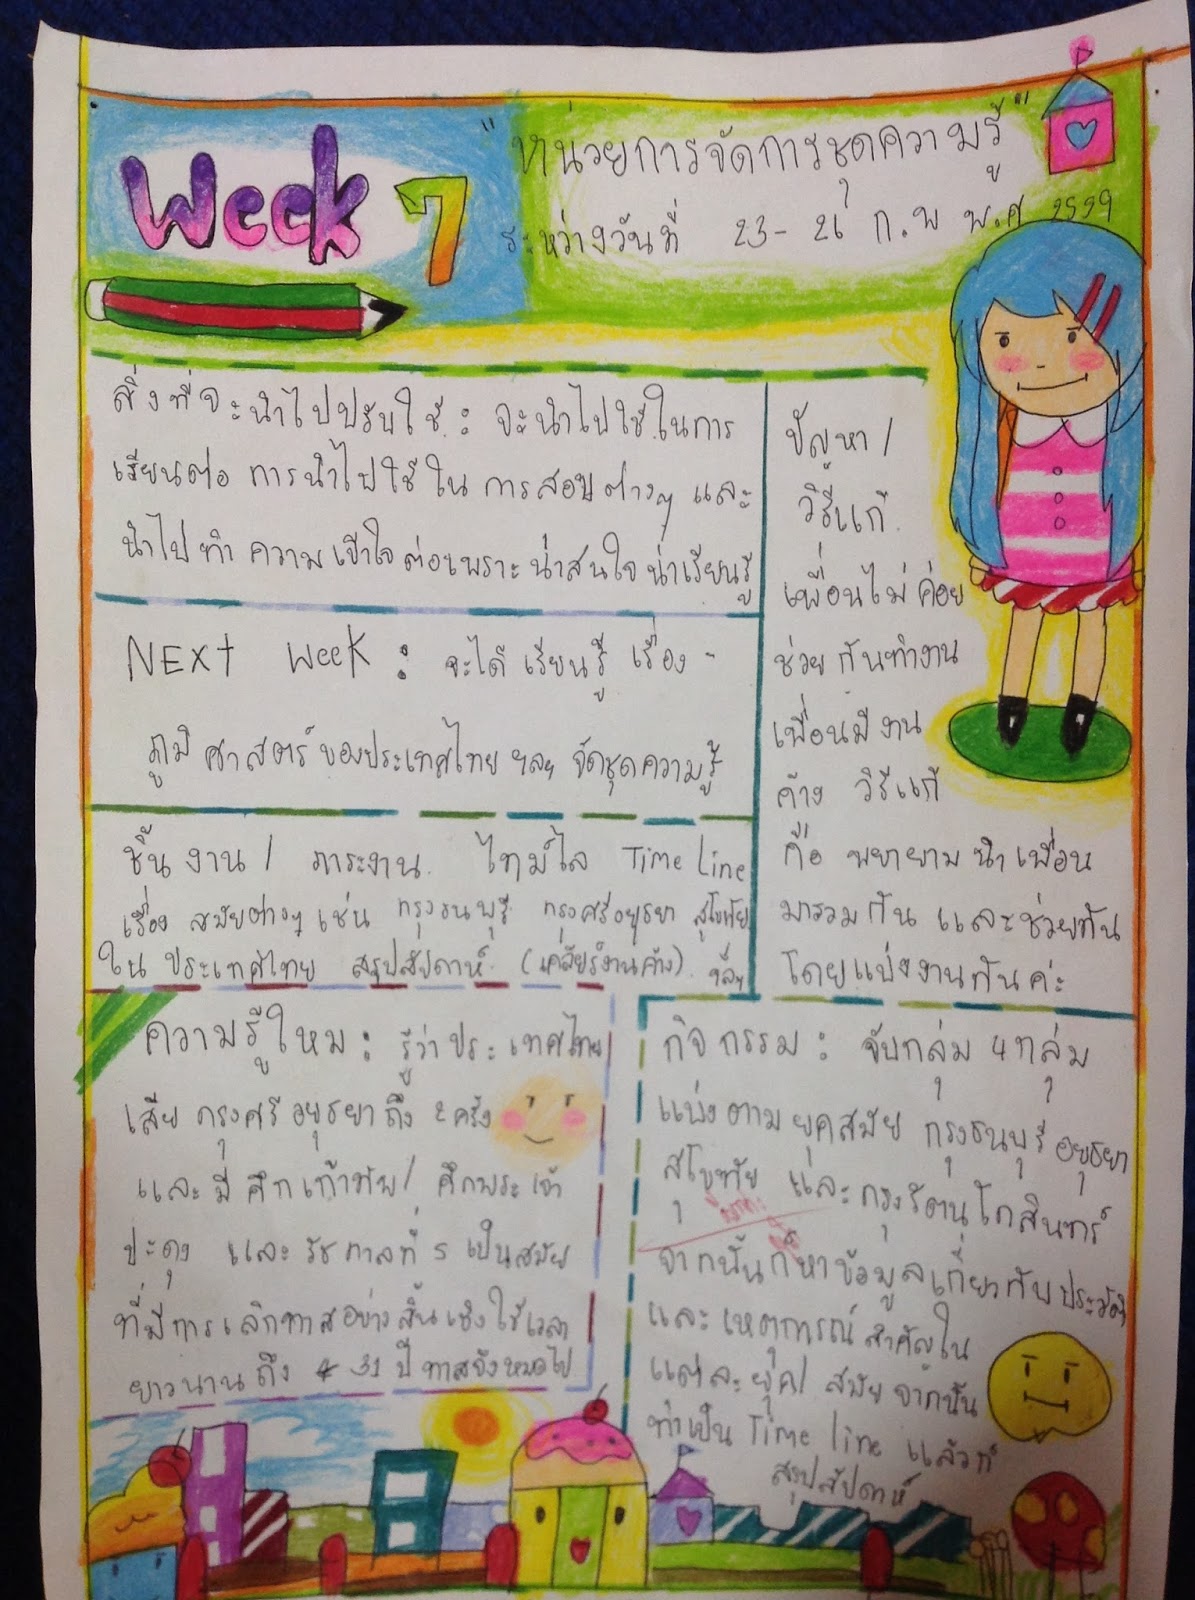 Week 7
"หน่วยการจัดการชุดความรู้"
ระหว่างวันที่ 23 - 26 ก.พ พ.ศ 2559
สิ่งที่จะนำไปปรับใช้ : จะนำไปใช้ในการ
เรียนต่อ การนำไปใช้ใน การสอบต่างๆ และ
นำไปทำ ความเข้าใจ ต่อเพราะ น่าสนใจ น่าเรียนรู้
NEXt Week : จะได้ เรียนรู้ เรื่อง -
ภูมิ ศาสตร์ ของประเทศไทย ฯลฯ จัดชุดความรู้
ชิ้น งาน / ภาระงาน. ไทม์ไล Time line
เรื่อง สมัยต่างๆ เช่น กรุงธนบุรี กรุงศรีอยุธยา สุโขทัย
ใน ประเทศไทย สรุปสัปดาห์ (เคลียร์งานค้าง) ฯลฯ
ปัญหา /
วิธีแก้
เพื่อนไม่ ค่อย
ช่วย กันทำงาน
เพื่อนมี งาน
ค้าง วิธีแก้
คือ พยายาม นำ เพื่อน
มารวม กัน และช่วยกัน
โดยแบ่งงานกันค่ะ
ความรู้ใหม : รู้ว่า ประเทศไทย
เสีย กรุงศรี อยุธยา ถึง 2 ครั้ง
และ มี ศึก เก้าทัพ / ศึกพระเจ้า
ปะดุง และ รัชกาลที่ 5 เป็นสมัย
ที่มีการ เลิกทาสอย่าง สิ้นเชิงใช้เวลา
ยาวนาน ถึง 31 ปี ทาสจึงหมดไป
กิจกรรม : จับกลุ่ม 4 กลุ่ม
แบ่งตาม ยุคสมัย กรุงธนบุรี อยุธยา
สุโขทัย และ กรุงรัตนโกสินทร์
จากนั้นก็หาข้อมูลเกี่ยวกับประวัติ
และ เหตุการณ์ สำคัญใน
แต่ละ ยุค / สมัย จากนั้น
ทำเป็น Time line แล้วก็
สรุปสัปดาห์